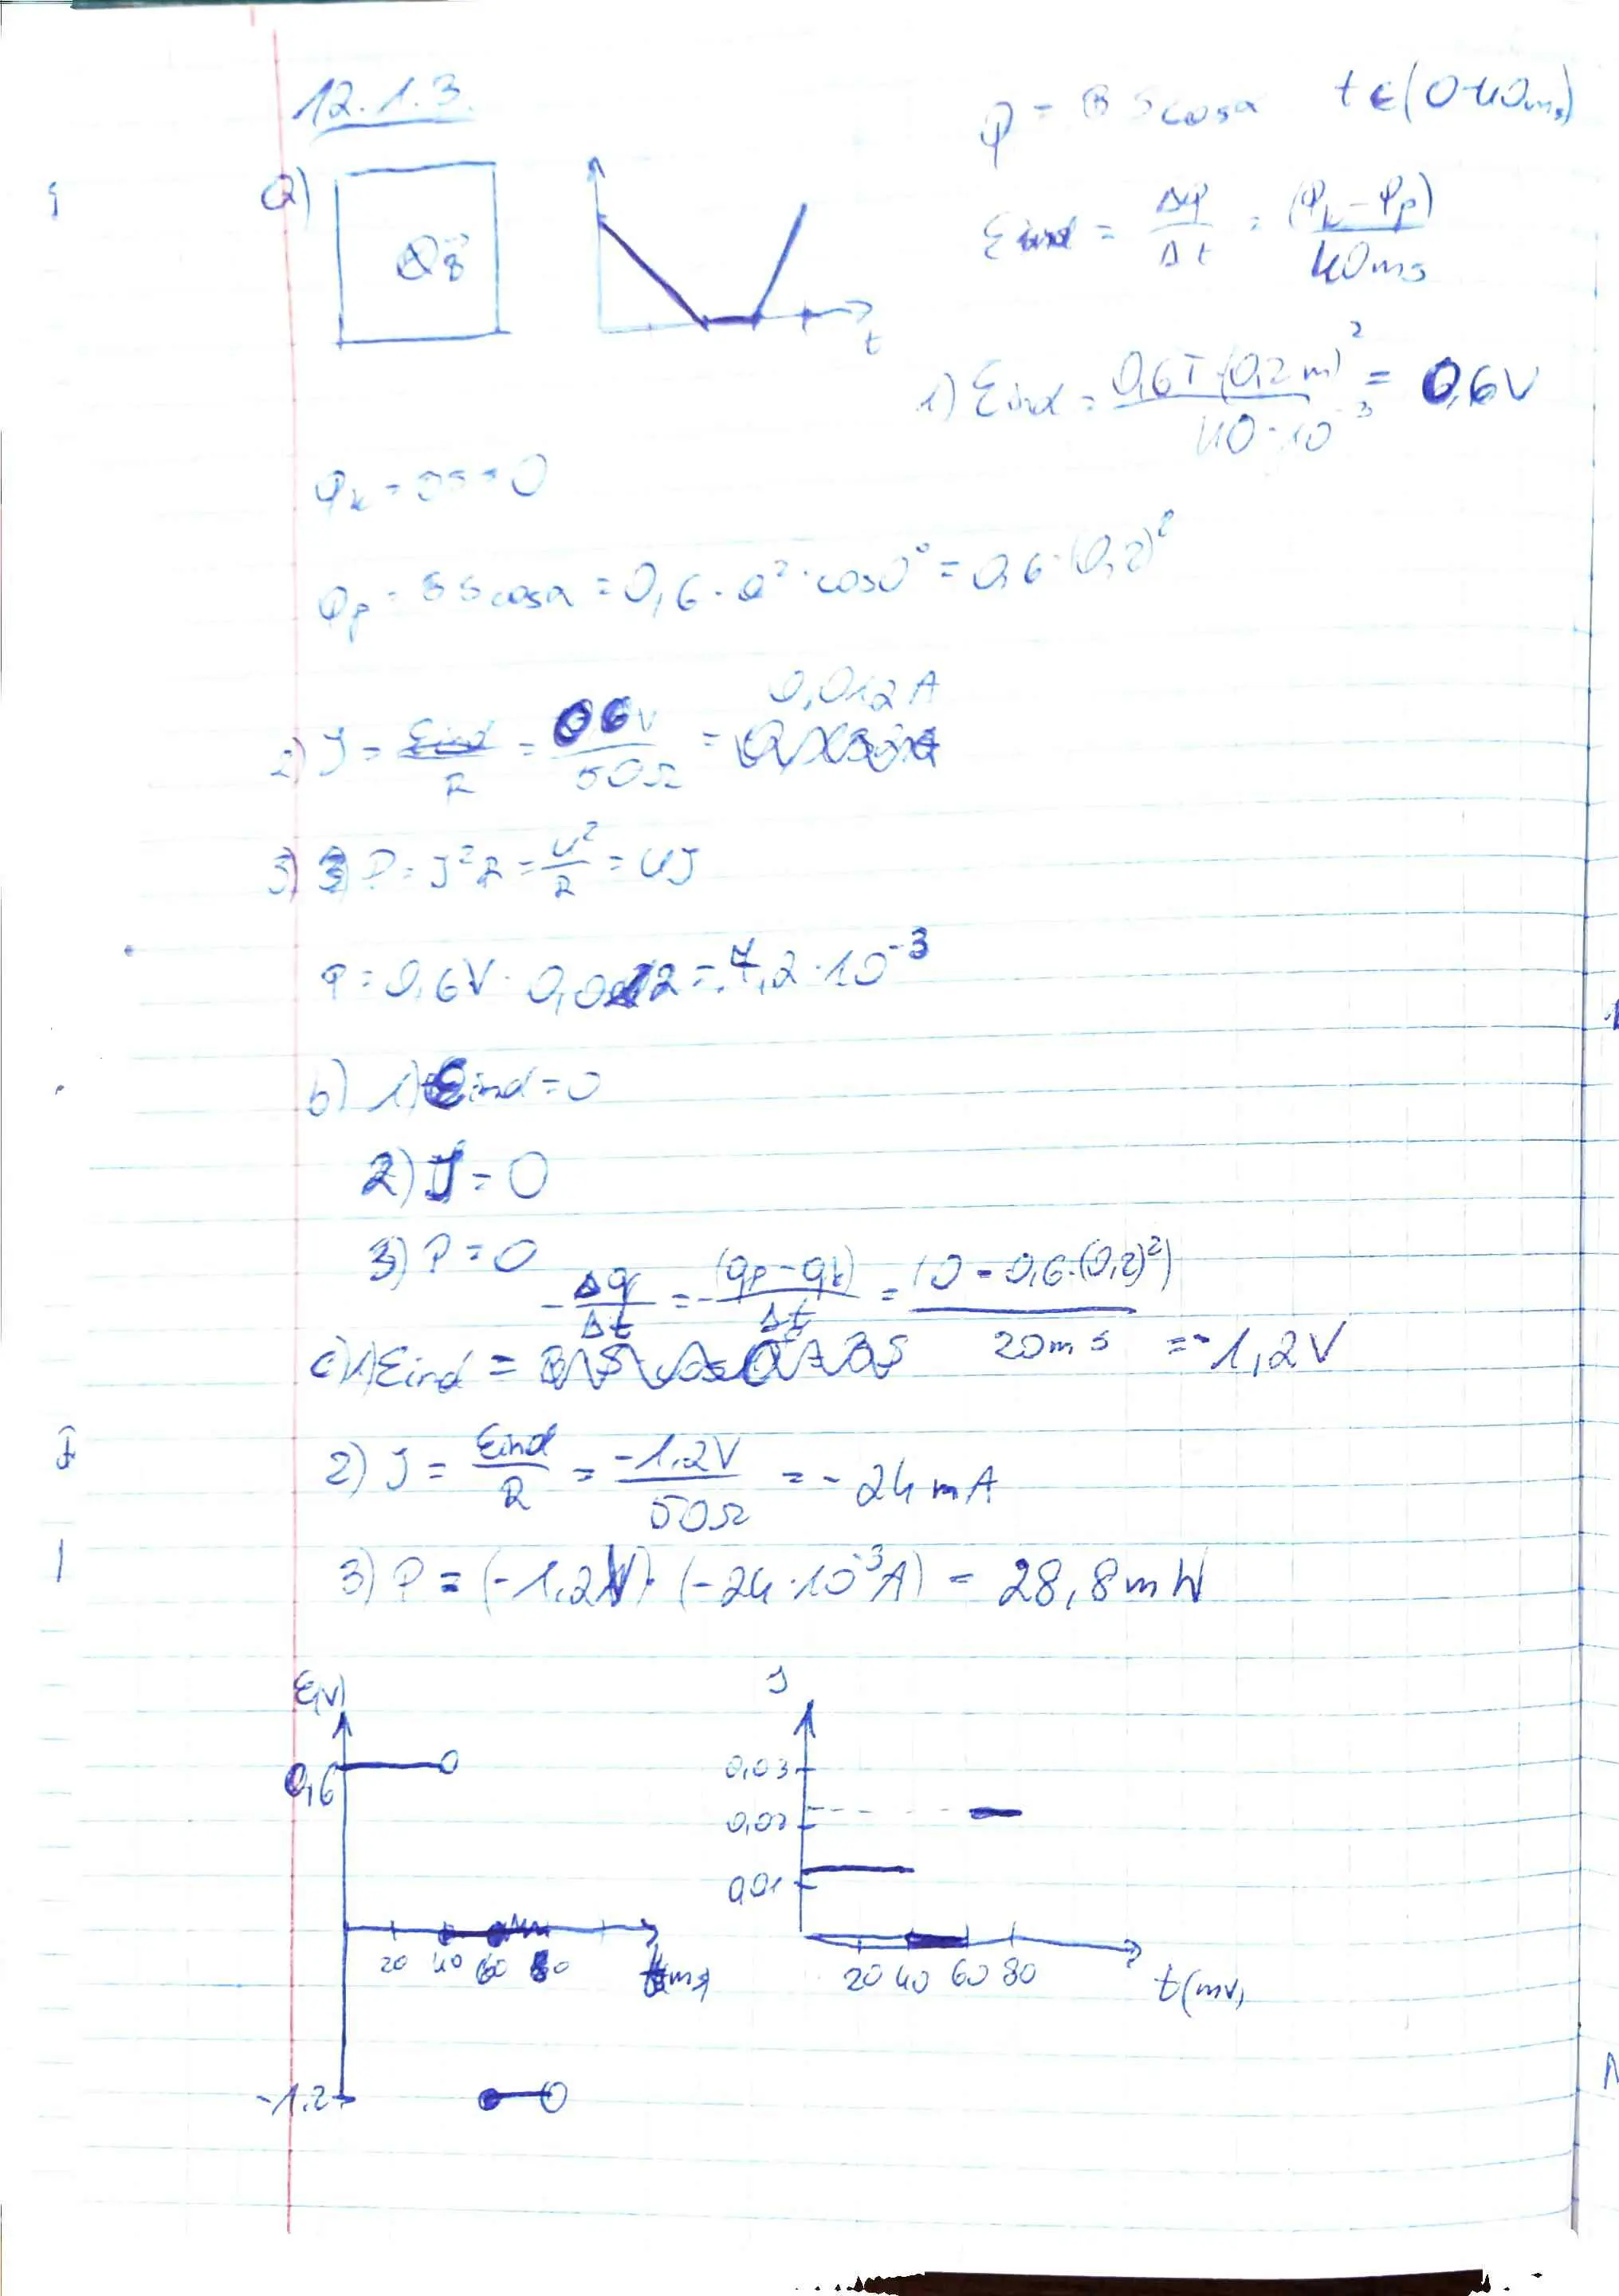 12.1.3.
φ = B S cosα t ∈ (0-40ms)
a)
B
t
εind = Δφ/Δt = (φk - φp)/40ms
1) εind = 0,6T·(0,2m)²/40·10⁻³ = 0,6V
φk = BS = 0
φp = BS cosα = 0,6 · a² · cos0° = 0,6·(0,2)²
0,012A
2) J = εind/R = 0,6V/50Ω =
3) P = J²R = U²/R = UJ
P = 0,6V · 0,012 = 7,2·10⁻³
b) 1) εind = 0
2) J = 0
3) P = 0
c) 1) εind = -Δφ/Δt = -(φp-φk)/Δt = (0-0,6·(0,2)²)/20ms = -1,2V
2) J = εind/R = -1,2V/50Ω = -24mA
3) P = (-1,2V)·(-24·10⁻³A) = 28,8mW
ε(V)
0,6
20 40 60 80 t(ms)
-1,2
J
0,03
0,02
0,01
20 40 60 80
t(ms)